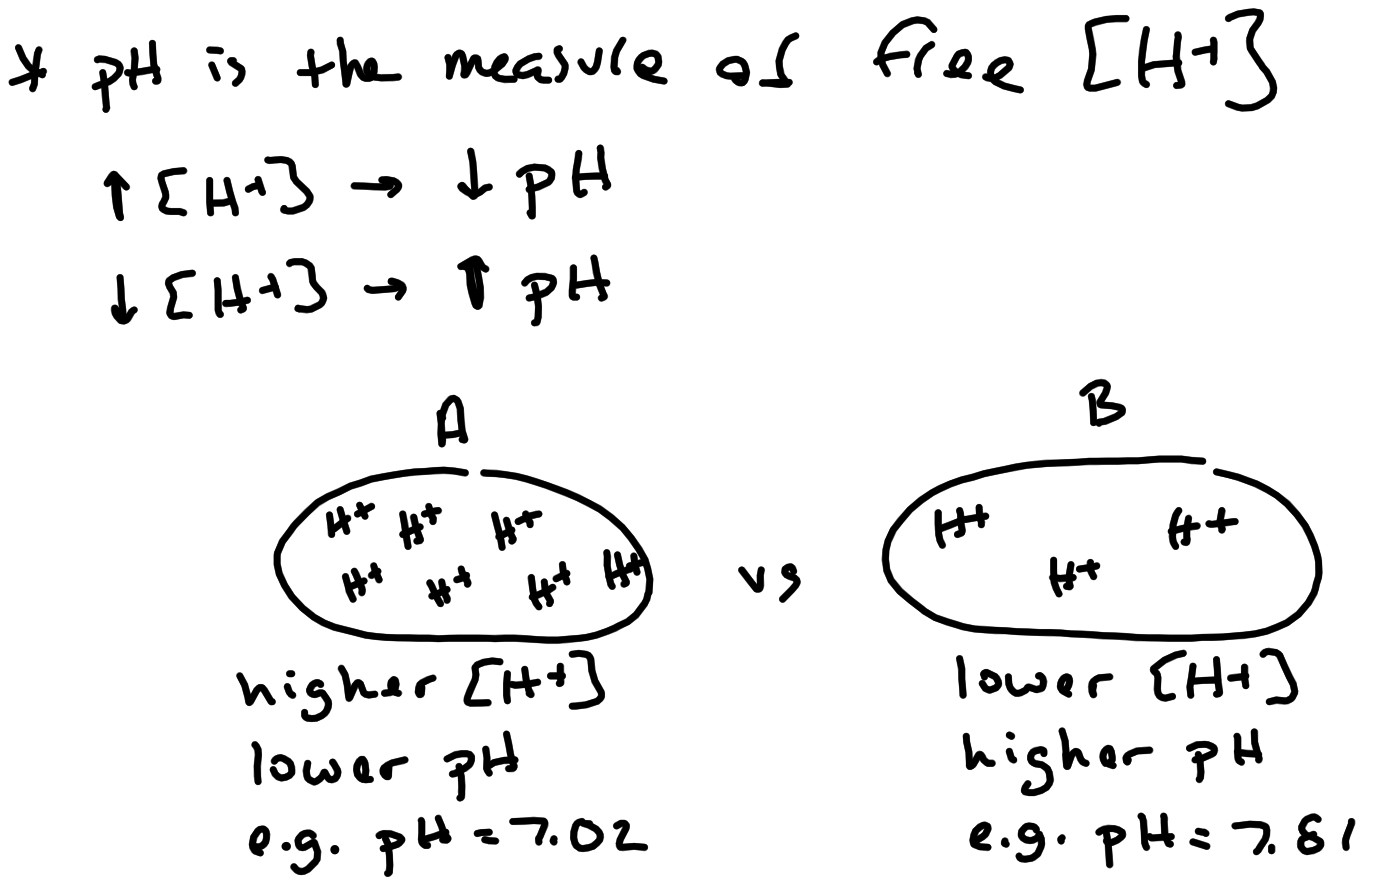 * pH is the measure of free [H+]
↑ [H+] → ↓ pH
↓ [H+] → ↑ pH
A
B
H+ H+ H+
H+ H+ H+ H+
vs
H+ H+
H+
higher [H+]
lower pH
e.g. pH = 7.02
lower [H+]
higher pH
e.g. pH = 7.81